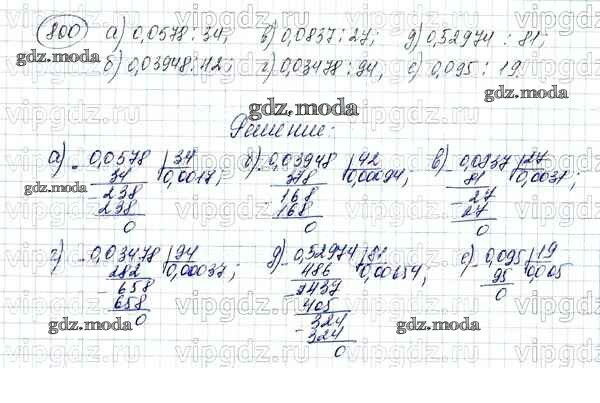 800 а) 0,0578 : 34; в) 0,0837 : 27; д) 0,52974 : 81;
б) 0,03948 : 42; г) 0,03478 : 94, е) 0,095 : 19.
gdz.moda
gdz.moda
gdz.moda
Решение:
а) 0,0578 | 34 б) 0,03948 | 42 в) 0,0837 | 27
34 0,0017; 378 0,00094; 81 0,0031;
- 238 - 168 - 27
238 168 27
0 0 0
г) 0,03478 | 94 д) 0,52974 | 81 е) 0,095 | 19
282 0,00037; 486 0,00654; 95 0,005
- 658 - 437 0
658 405
0 - 324
324
0
gdz.moda
gdz.moda
gdz.moda
vipgdz.ru